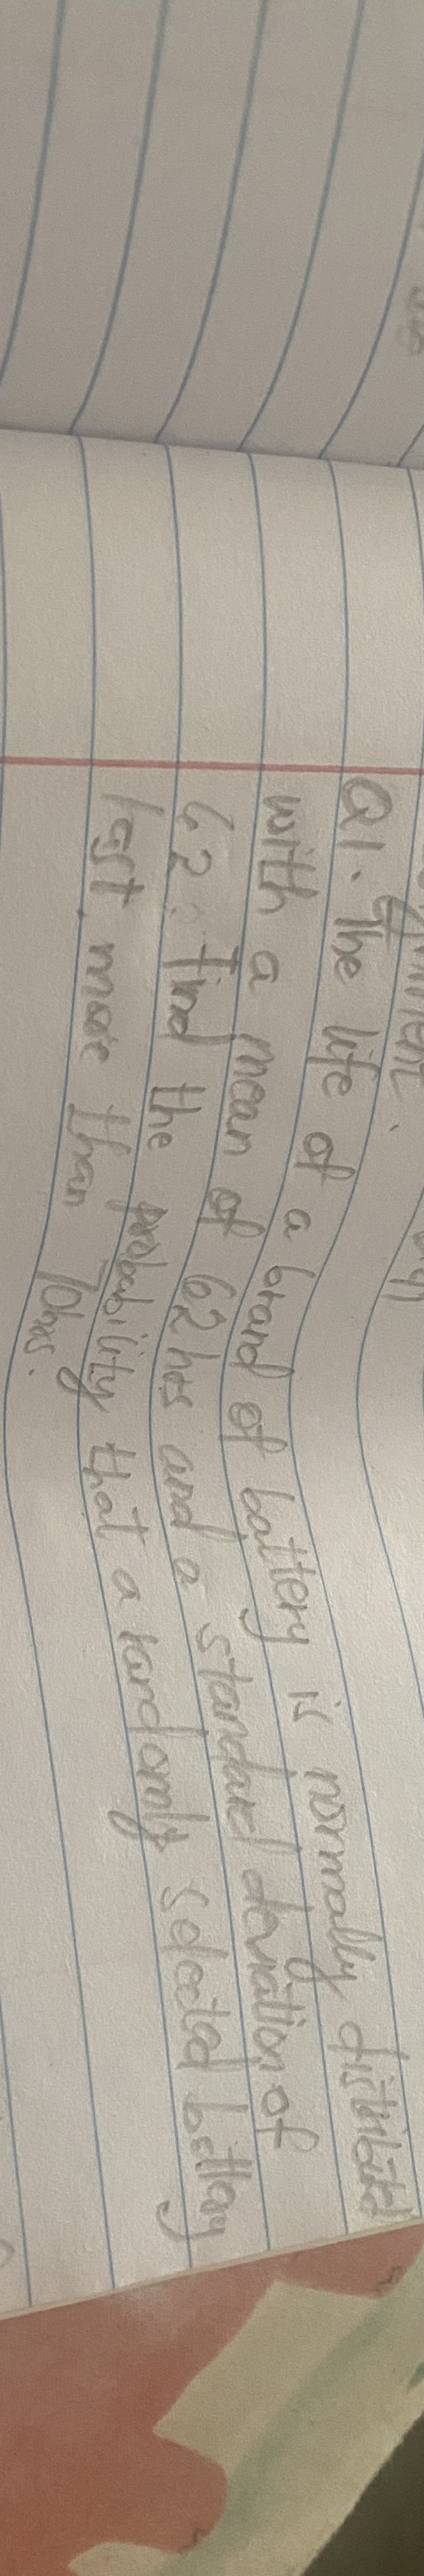 Q1. The life of a brand of battery is normally distributed
with a mean of 62hrs and a standard deviation of
62. Find the probability that a randomly selected battery
last more than 70hrs.